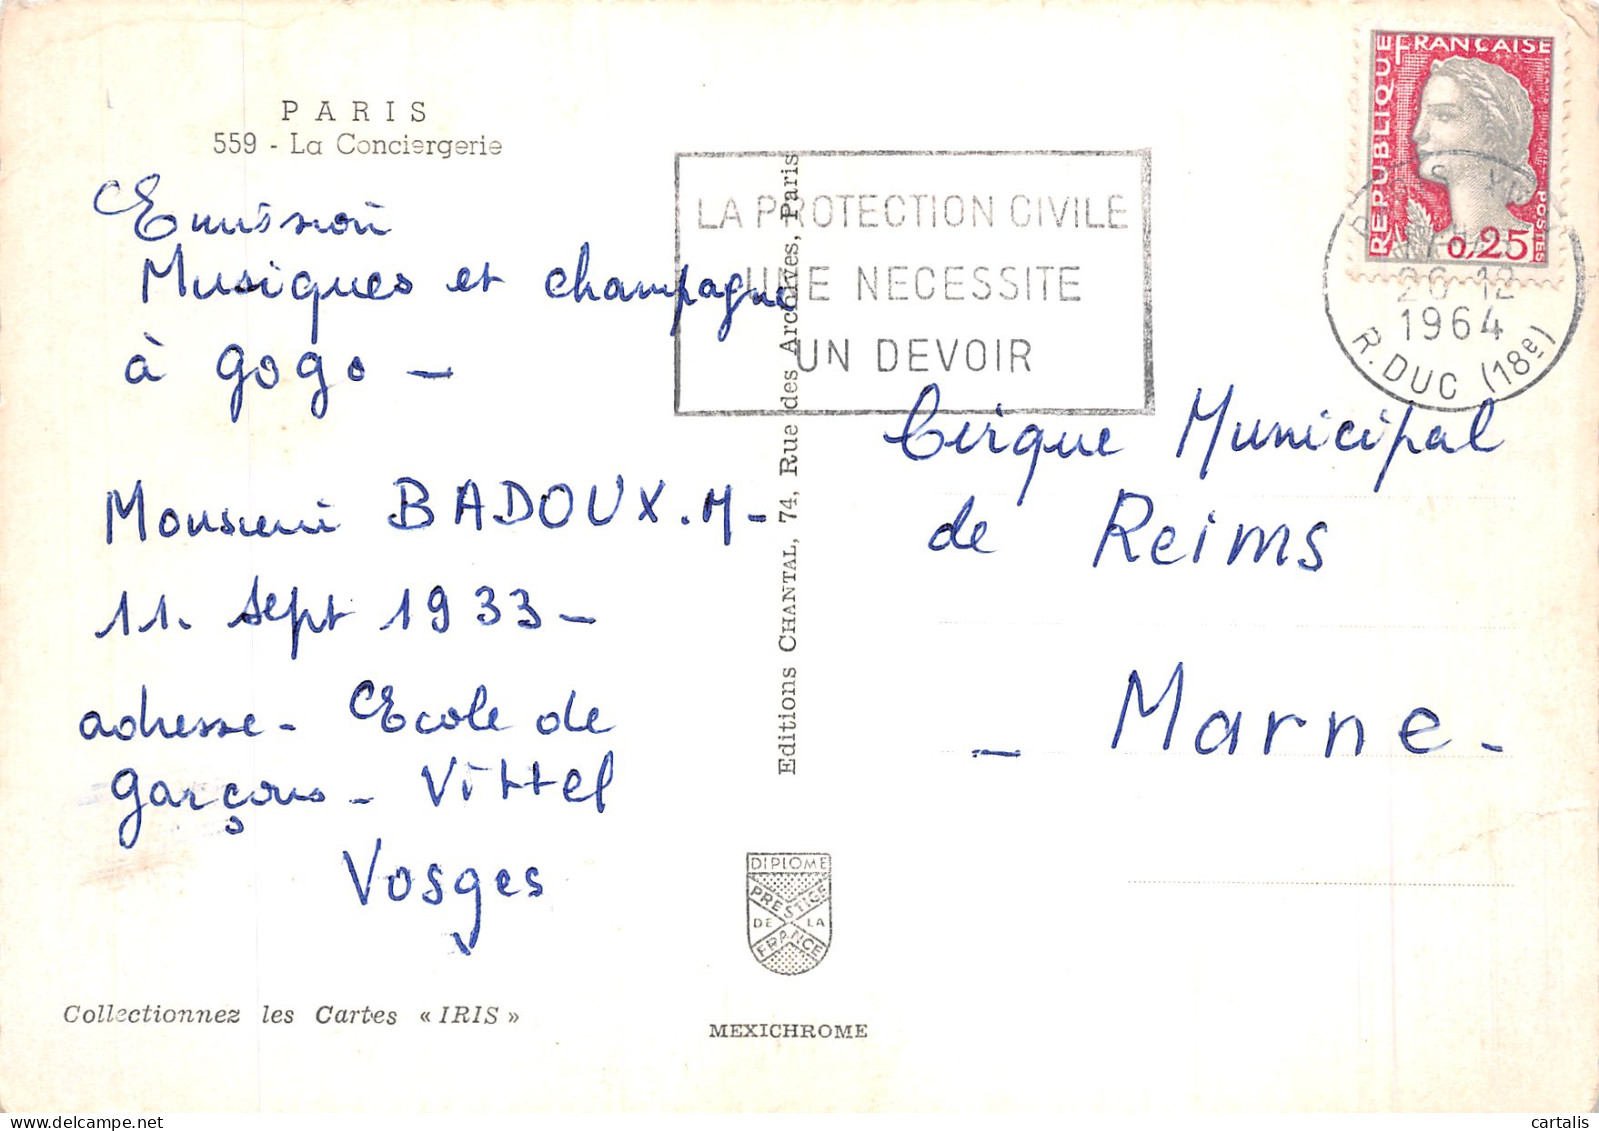 PARIS
559 - La Conciergerie
Emission
Musiques et champagne
à gogo -
Monsieur BADOUX.M-
11. Sept 1933-
adresse- Ecole de
garçons- Vittel
Vosges
Collectionnez les Cartes « IRIS »
Editions CHANTAL, 74, Rue des Archives, Paris
DIPLOME
PRESTIGE
DE LA
FRANCE
MEXICHROME
LA PROTECTION CIVILE
UNE NECESSITE
UN DEVOIR
REPUBLIQUE FRANÇAISE
POSTES
0,25
26-12
1964
R. DUC (18e)
Cirque Municipal
de Reims
- Marne -
cartalis